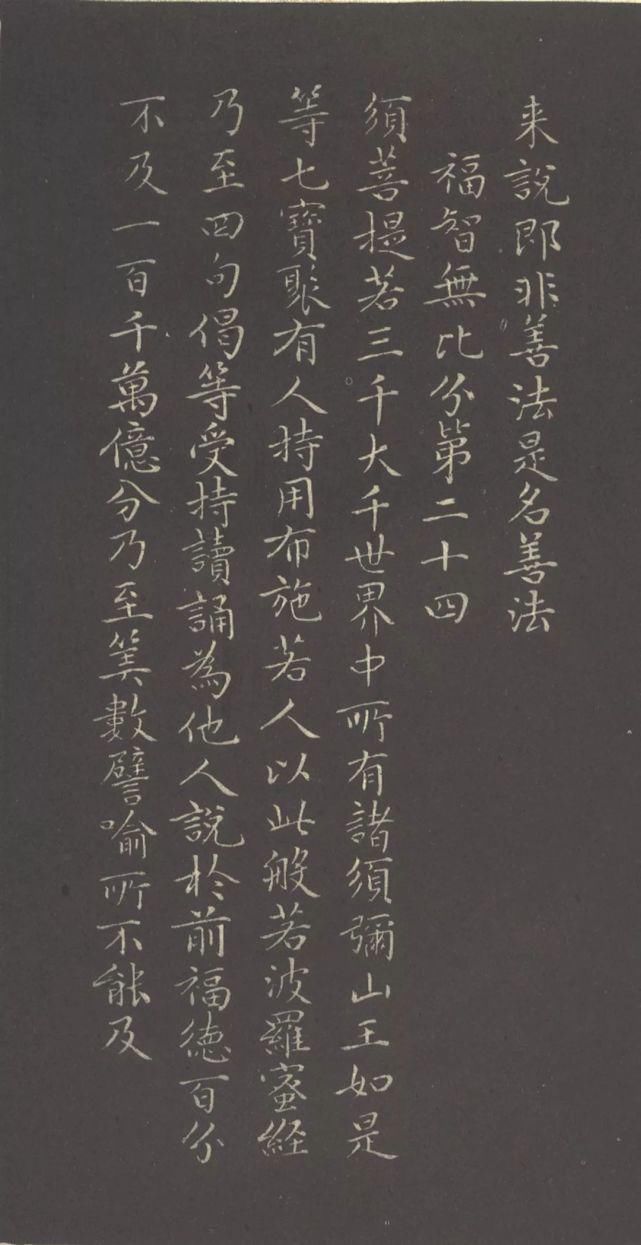 来說即非善法是名善法
福智無比分第二十四
須菩提若三千大千世界中所有諸須彌山王如是
等七寶聚有人持用布施若人以此般若波羅蜜經
乃至四句偈等受持讀誦為他人說於前福德百分
不及一百千萬億分乃至筭數譬喻所不能及